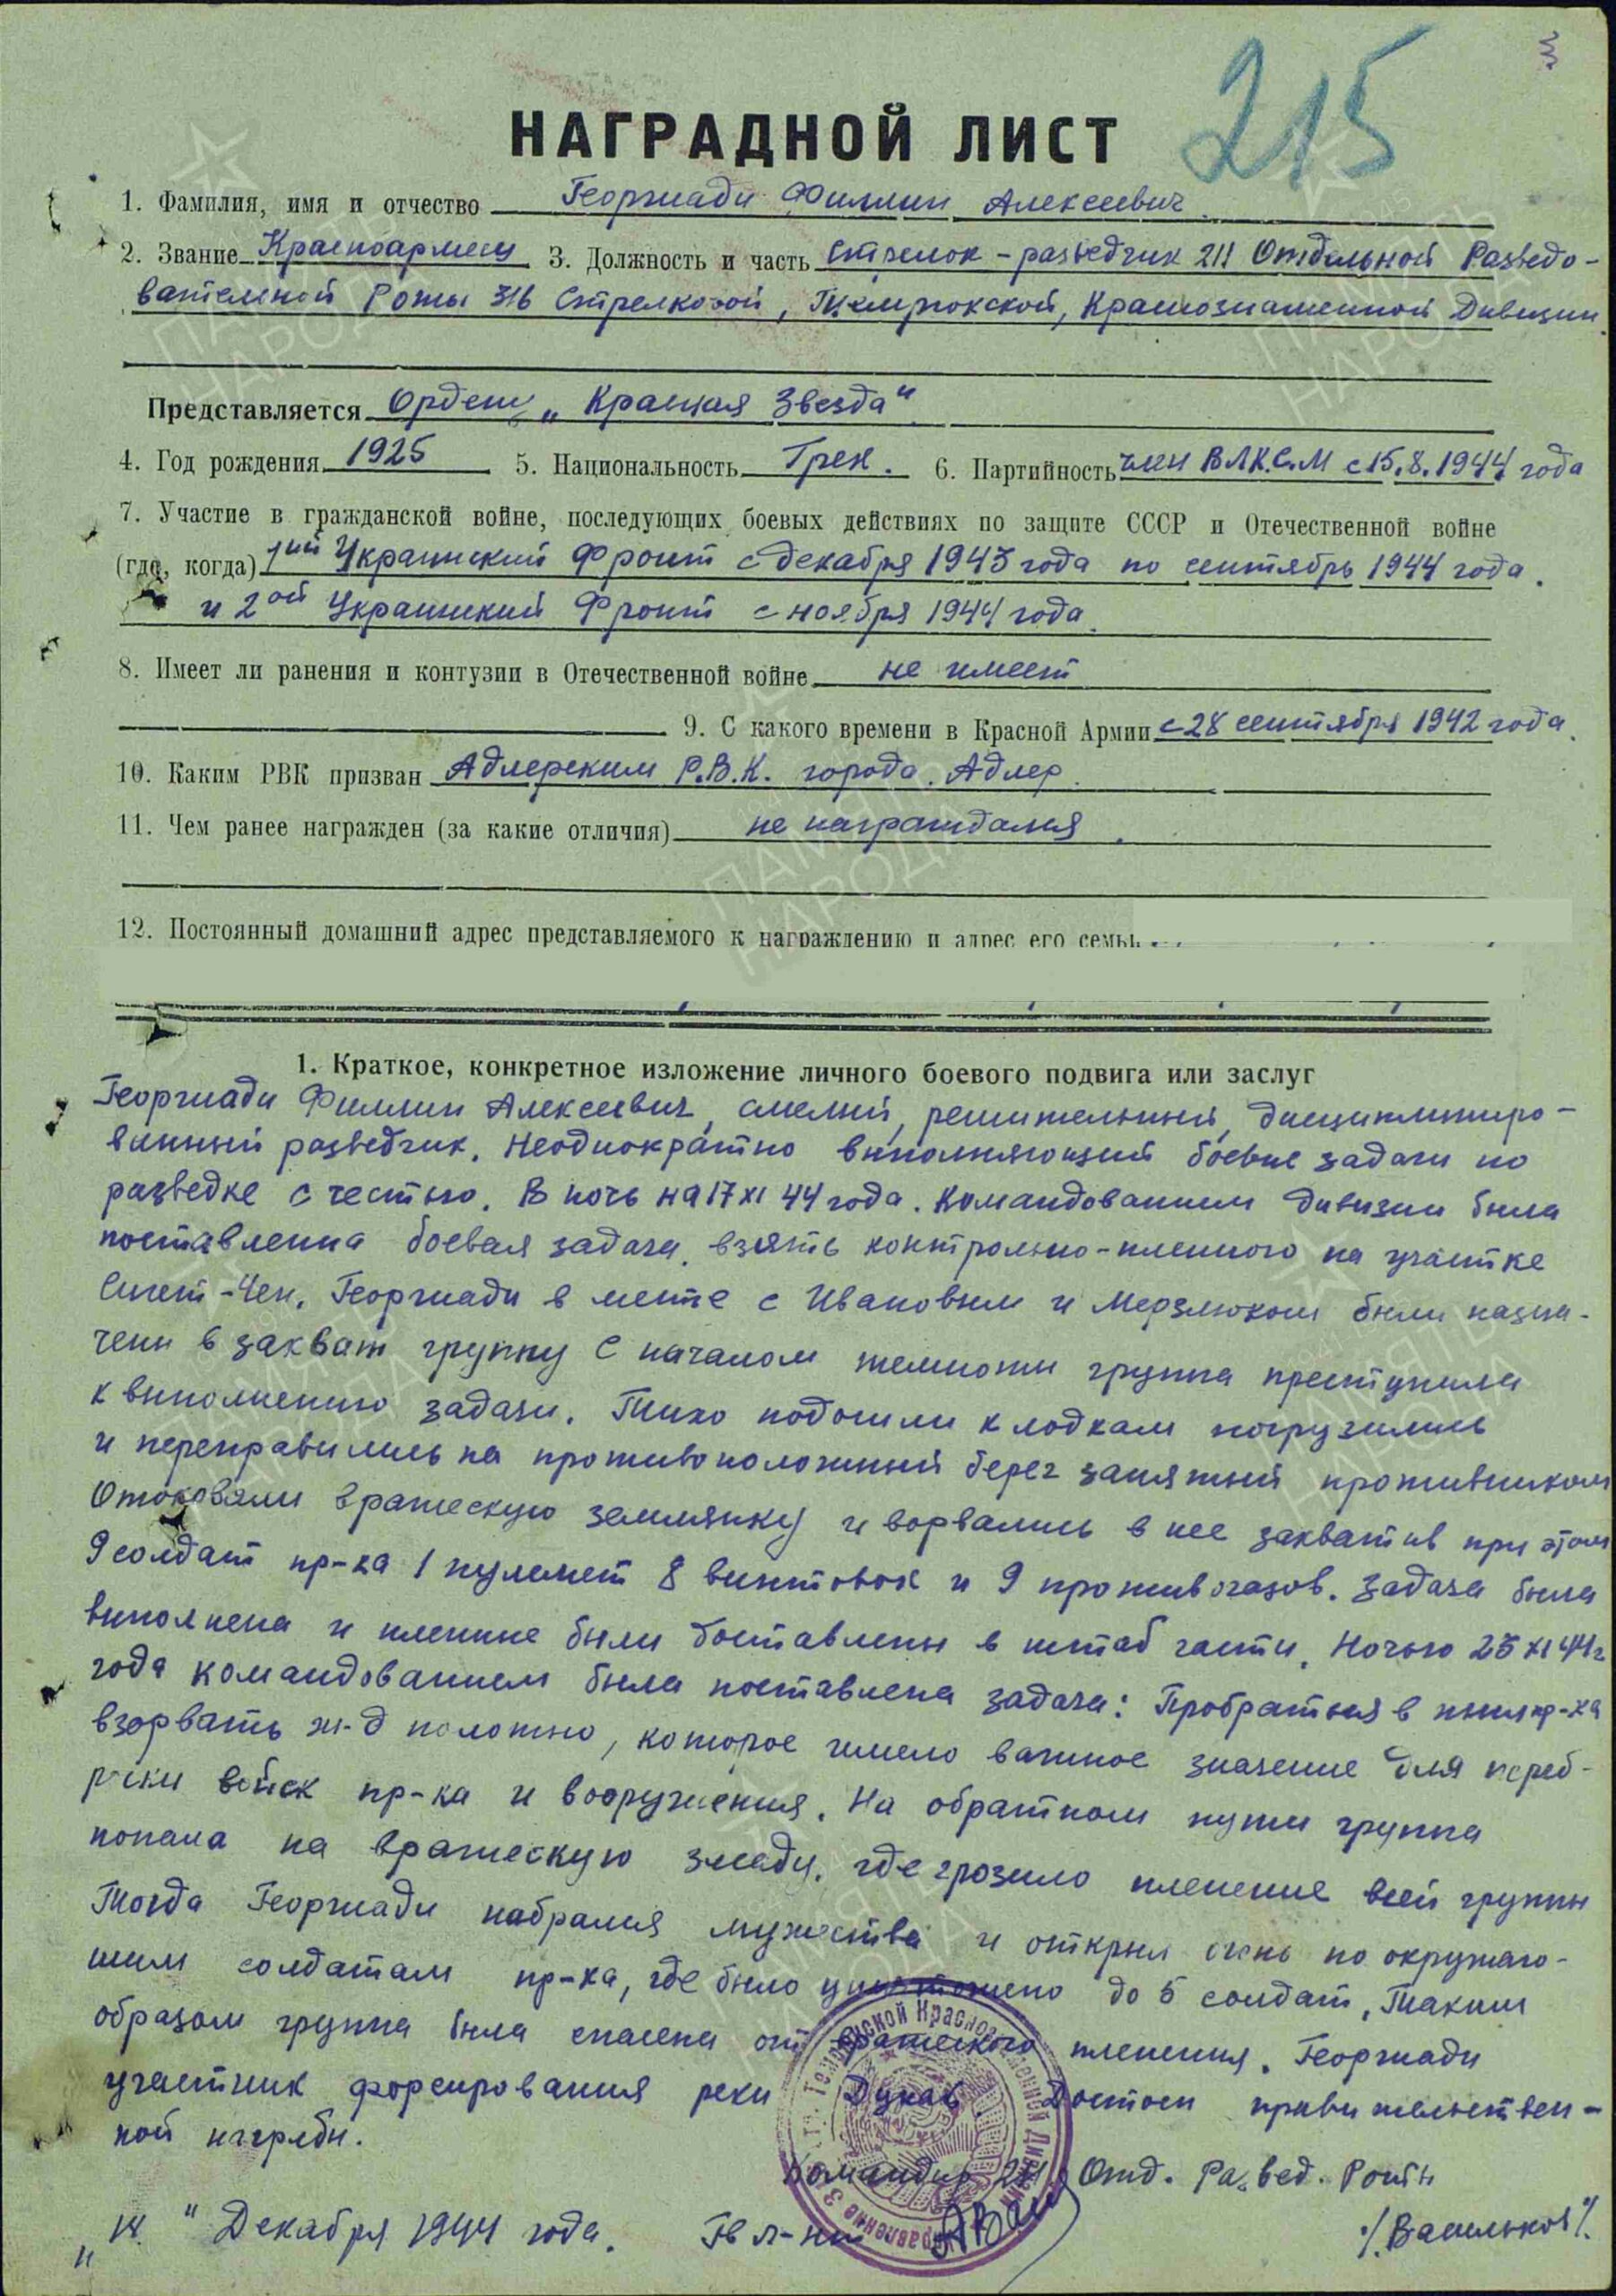 3
215
НАГРАДНОЙ ЛИСТ
1. Фамилия, имя и отчество Георгиади Филлип Алексеевич.
2. Звание Красноармеец 3. Должность и часть Стрелок-разведчик 211 Отдельной Разведо-
вательной Роты 316 Стрелковой, Темрюкской, Краснознаменной Дивизии.
Представляется Ордену „Красная Звезда“
4. Год рождения 1925 5. Национальность Грек. 6. Партийность член ВЛК.С.М с 15.8.1944 года
7. Участие в гражданской войне, последующих боевых действиях по защите СССР и Отечественной войне
(где, когда) 1ый Украинский Фронт с декабря 1943 года по сентябрь 1944 года.
и 2ой Украинский Фронт с ноября 1944 года.
8. Имеет ли ранения и контузии в Отечественной войне не имеет
9. С какого времени в Красной Армии с 28 сентября 1942 года.
10. Каким РВК призван Адлерским Р.В.К. города. Адлер.
11. Чем ранее награжден (за какие отличия) не награждался.
12. Постоянный домашний адрес представляемого к награждению и адрес его семьи
1. Краткое, конкретное изложение личного боевого подвига или заслуг
Георгиади Филлип Алексеевич, смелый, решительный, дисциплиниро-
ванный разведчик. Неоднократно выполняющий боевые задачи по
разведке с честью. В ночь на 17 XI 44 года. Командованием дивизии была
поставленна боевая задача. взять контрольно-пленного на участке
Сигет-Чеп. Георгиади в месте с Ивановым и Мерзлюком были назна-
чены в захват группу С началом темноты группа преступила
к выполнению задачи. Тихо подошли к лодкам погрузились
и переправились на противоположный берег занятый противником
Отоковали вражескую землянку и ворвались в нее захватив при этом
9 солдат пр-ка 1 пулемет 8 винтовок и 9 противогазов. Задача была
выполнена и пленные были доставлены в штаб части. Ночью 25 XI 44 г
года командованием была поставлена задача: Пробраться в тыл пр-ка
взорвать ж-д полотно, которое имело важное значение для переб-
роски войск пр-ка и вооружения. На обратном пути группа
попала на вражескую где грозило пленение всей группы
Тогда Георгиади набрался мужества и открыл огонь по окружаю-
шим солдатам пр-ка, где было уничтожено до 5 солдат. Таким
образом группа была спасена от вражеского пленения. Георгиади
участник форсирования реки Дунай. Достоен правительствен-
ной награды.
Командир 211 Отд. Развед. Роты
„14“ Декабря 1944 года. Гв л-нт /Васильков/
ПАМЯТЬ НАРОДА